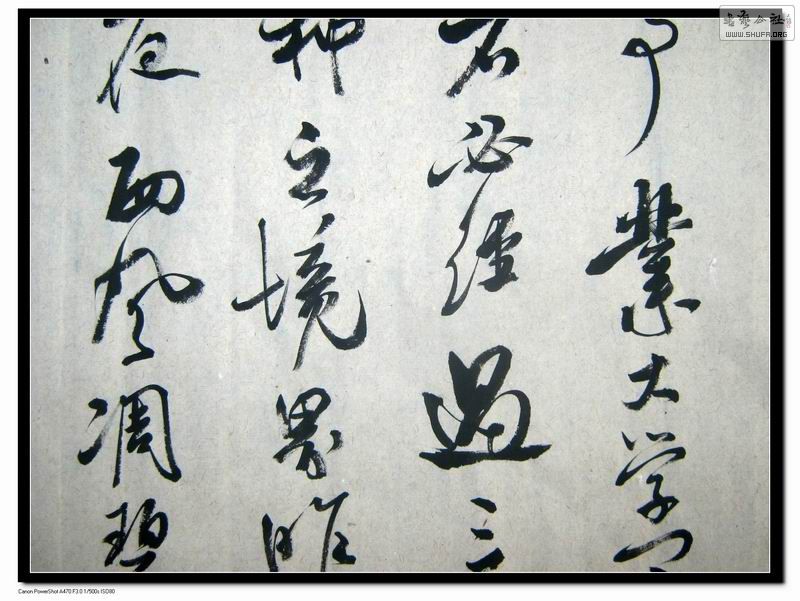 事業大学问
者必经過三
种之境界昨
夜西风凋碧
書藝公社
WWW.SHUFA.ORG
Canon PowerShot A470 F3.0 1/500s ISO80